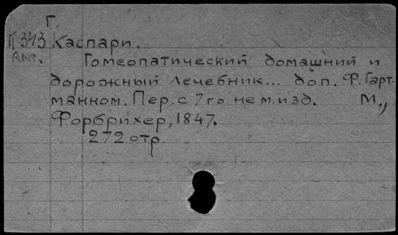 Г.
К 343 Каспари.
Гомеопатический домашний и
дорожный лечебник... доп. Ф. Гарт-
манном. Пер. с 7го нем. изд. М.,
Форбрихер, 1847.
272 стр